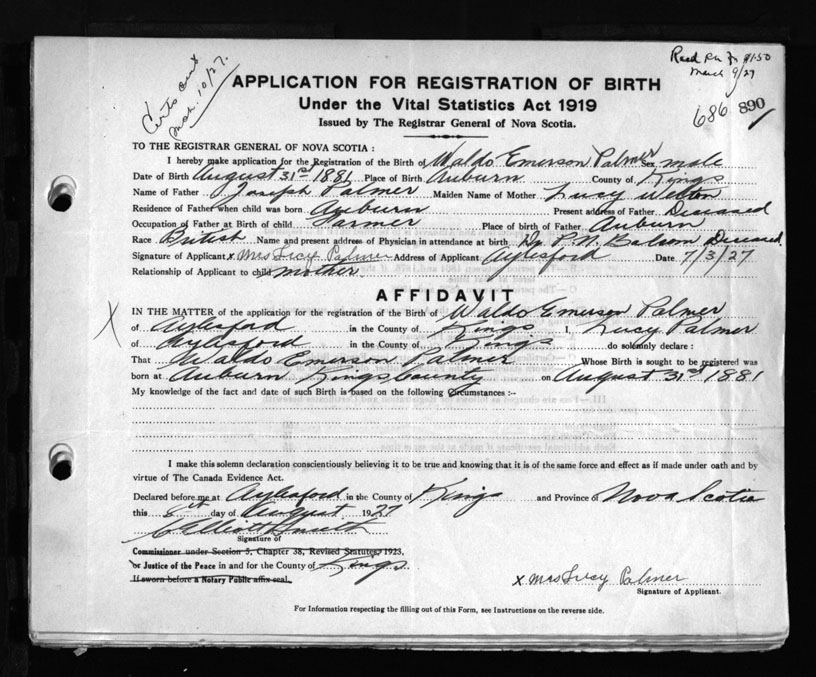 Certs sent
Mar. 10/27.
Recd $1.50
March 9/27
686 890
APPLICATION FOR REGISTRATION OF BIRTH
Under the Vital Statistics Act 1919
Issued by The Registrar General of Nova Scotia.
TO THE REGISTRAR GENERAL OF NOVA SCOTIA:
I hereby make application for the Registration of the Birth of Waldo Emerson Palmer Sex male
Date of Birth August 31st 1881 Place of Birth Auburn County of Kings
Name of Father Joseph Palmer Maiden Name of Mother Lucy Welton
Residence of Father when child was born Auburn Present address of Father Deceased
Occupation of Father at Birth of child Farmer Place of birth of Father Auburn
Race British Name and present address of Physician in attendance at birth Dr. P.N. Balcom Deceased
Signature of Applicant x Mrs Lucy Palmer Address of Applicant Aylesford Date 7/3/27
Relationship of Applicant to child mother
AFFIDAVIT
X
IN THE MATTER of the application for the registration of the Birth of Waldo Emerson Palmer
of Aylesford in the County of Kings I, Lucy Palmer
of Aylesford in the County of Kings do solemnly declare:
That Waldo Emerson Palmer Whose Birth is sought to be registered was
born at Auburn Kings County on August 31st 1881
My knowledge of the fact and date of such Birth is based on the following Circumstances:-
I make this solemn declaration conscientiously believing it to be true and knowing that it is of the same force and effect as if made under oath and by
virtue of The Canada Evidence Act.
Declared before me at Aylesford in the County of Kings and Province of Nova Scotia
this 8th day of August 1927
Elliott Smith
Signature of
Commissioner under Section 5, Chapter 38, Revised Statutes, 1923.
or Justice of the Peace in and for the County of Kings
If sworn before a Notary Public affix seal.
x Mrs Lucy Palmer
Signature of Applicant.
For Information respecting the filling out of this Form, see Instructions on the reverse side.